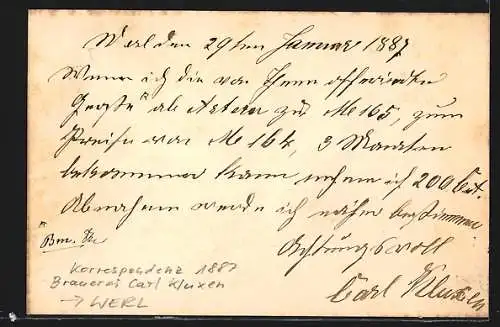 Werl den 29ten Januar 1887
Wenn ich die von Ihnen offerirte
Gerste ab Astern zu M 165, zum
Preise von M 164, 3 Monaten
bekommen kann nehme ich 200 Ctr.
Abnahme werde ich näher bestimmen
Achtungsvoll
Carl Kluxen
Korrespondenz 1887
Brauerei Carl Kluxen
→ WERL